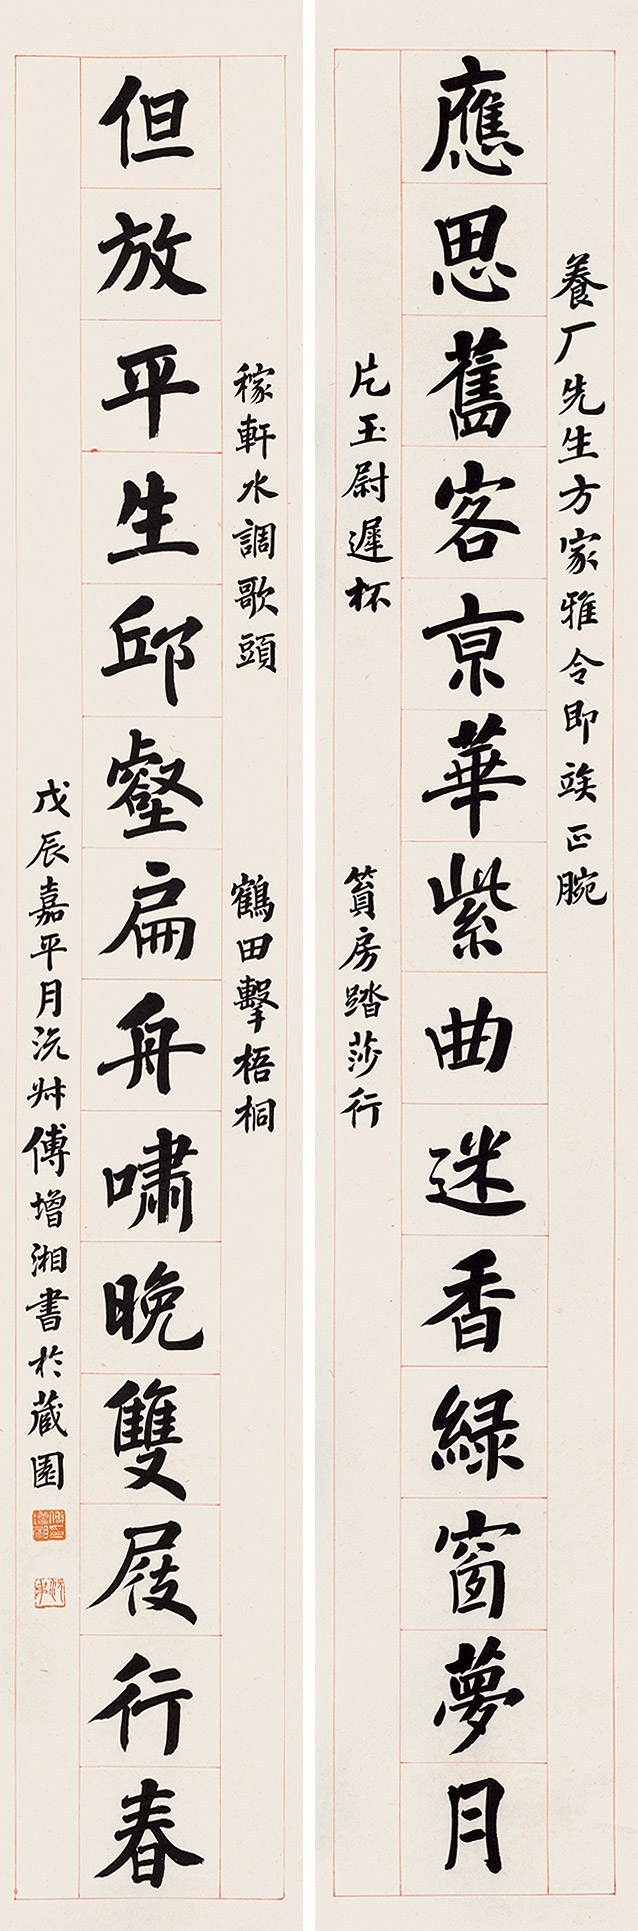 養厂先生方家雅令即竢正腕
應思舊客京華紫曲迷香綠窗夢月
片玉尉遲杯
篔房踏莎行
稼軒水調歌頭
鶴田擊梧桐
但放平生邱壑扁舟嘯晚雙屐行春
戊辰嘉平月沅叔傅增湘書於藏園